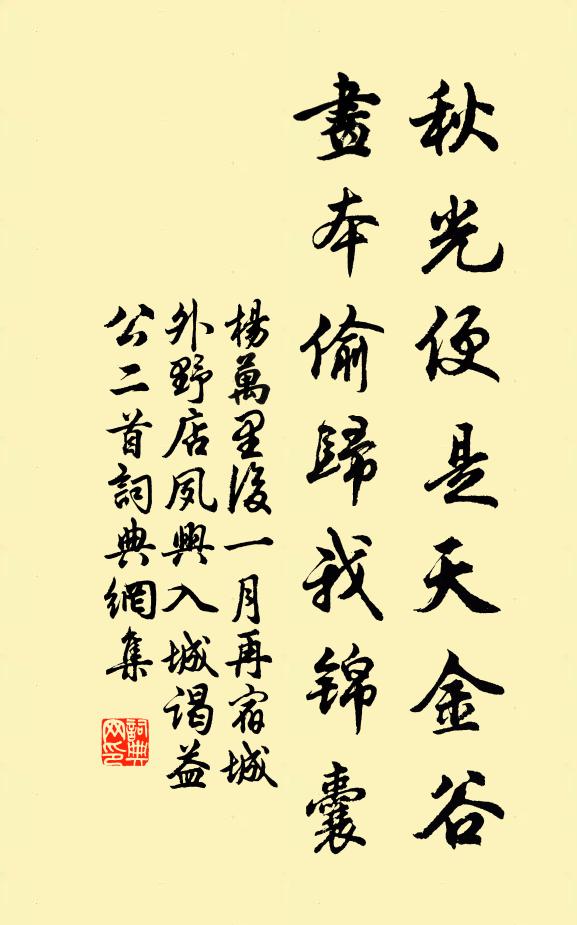 秋光便是天金谷
畫本偷歸我錦囊
楊萬里後一月再宿城
外野店夙興入城謁益
公二首詞典網集
詞典
网印